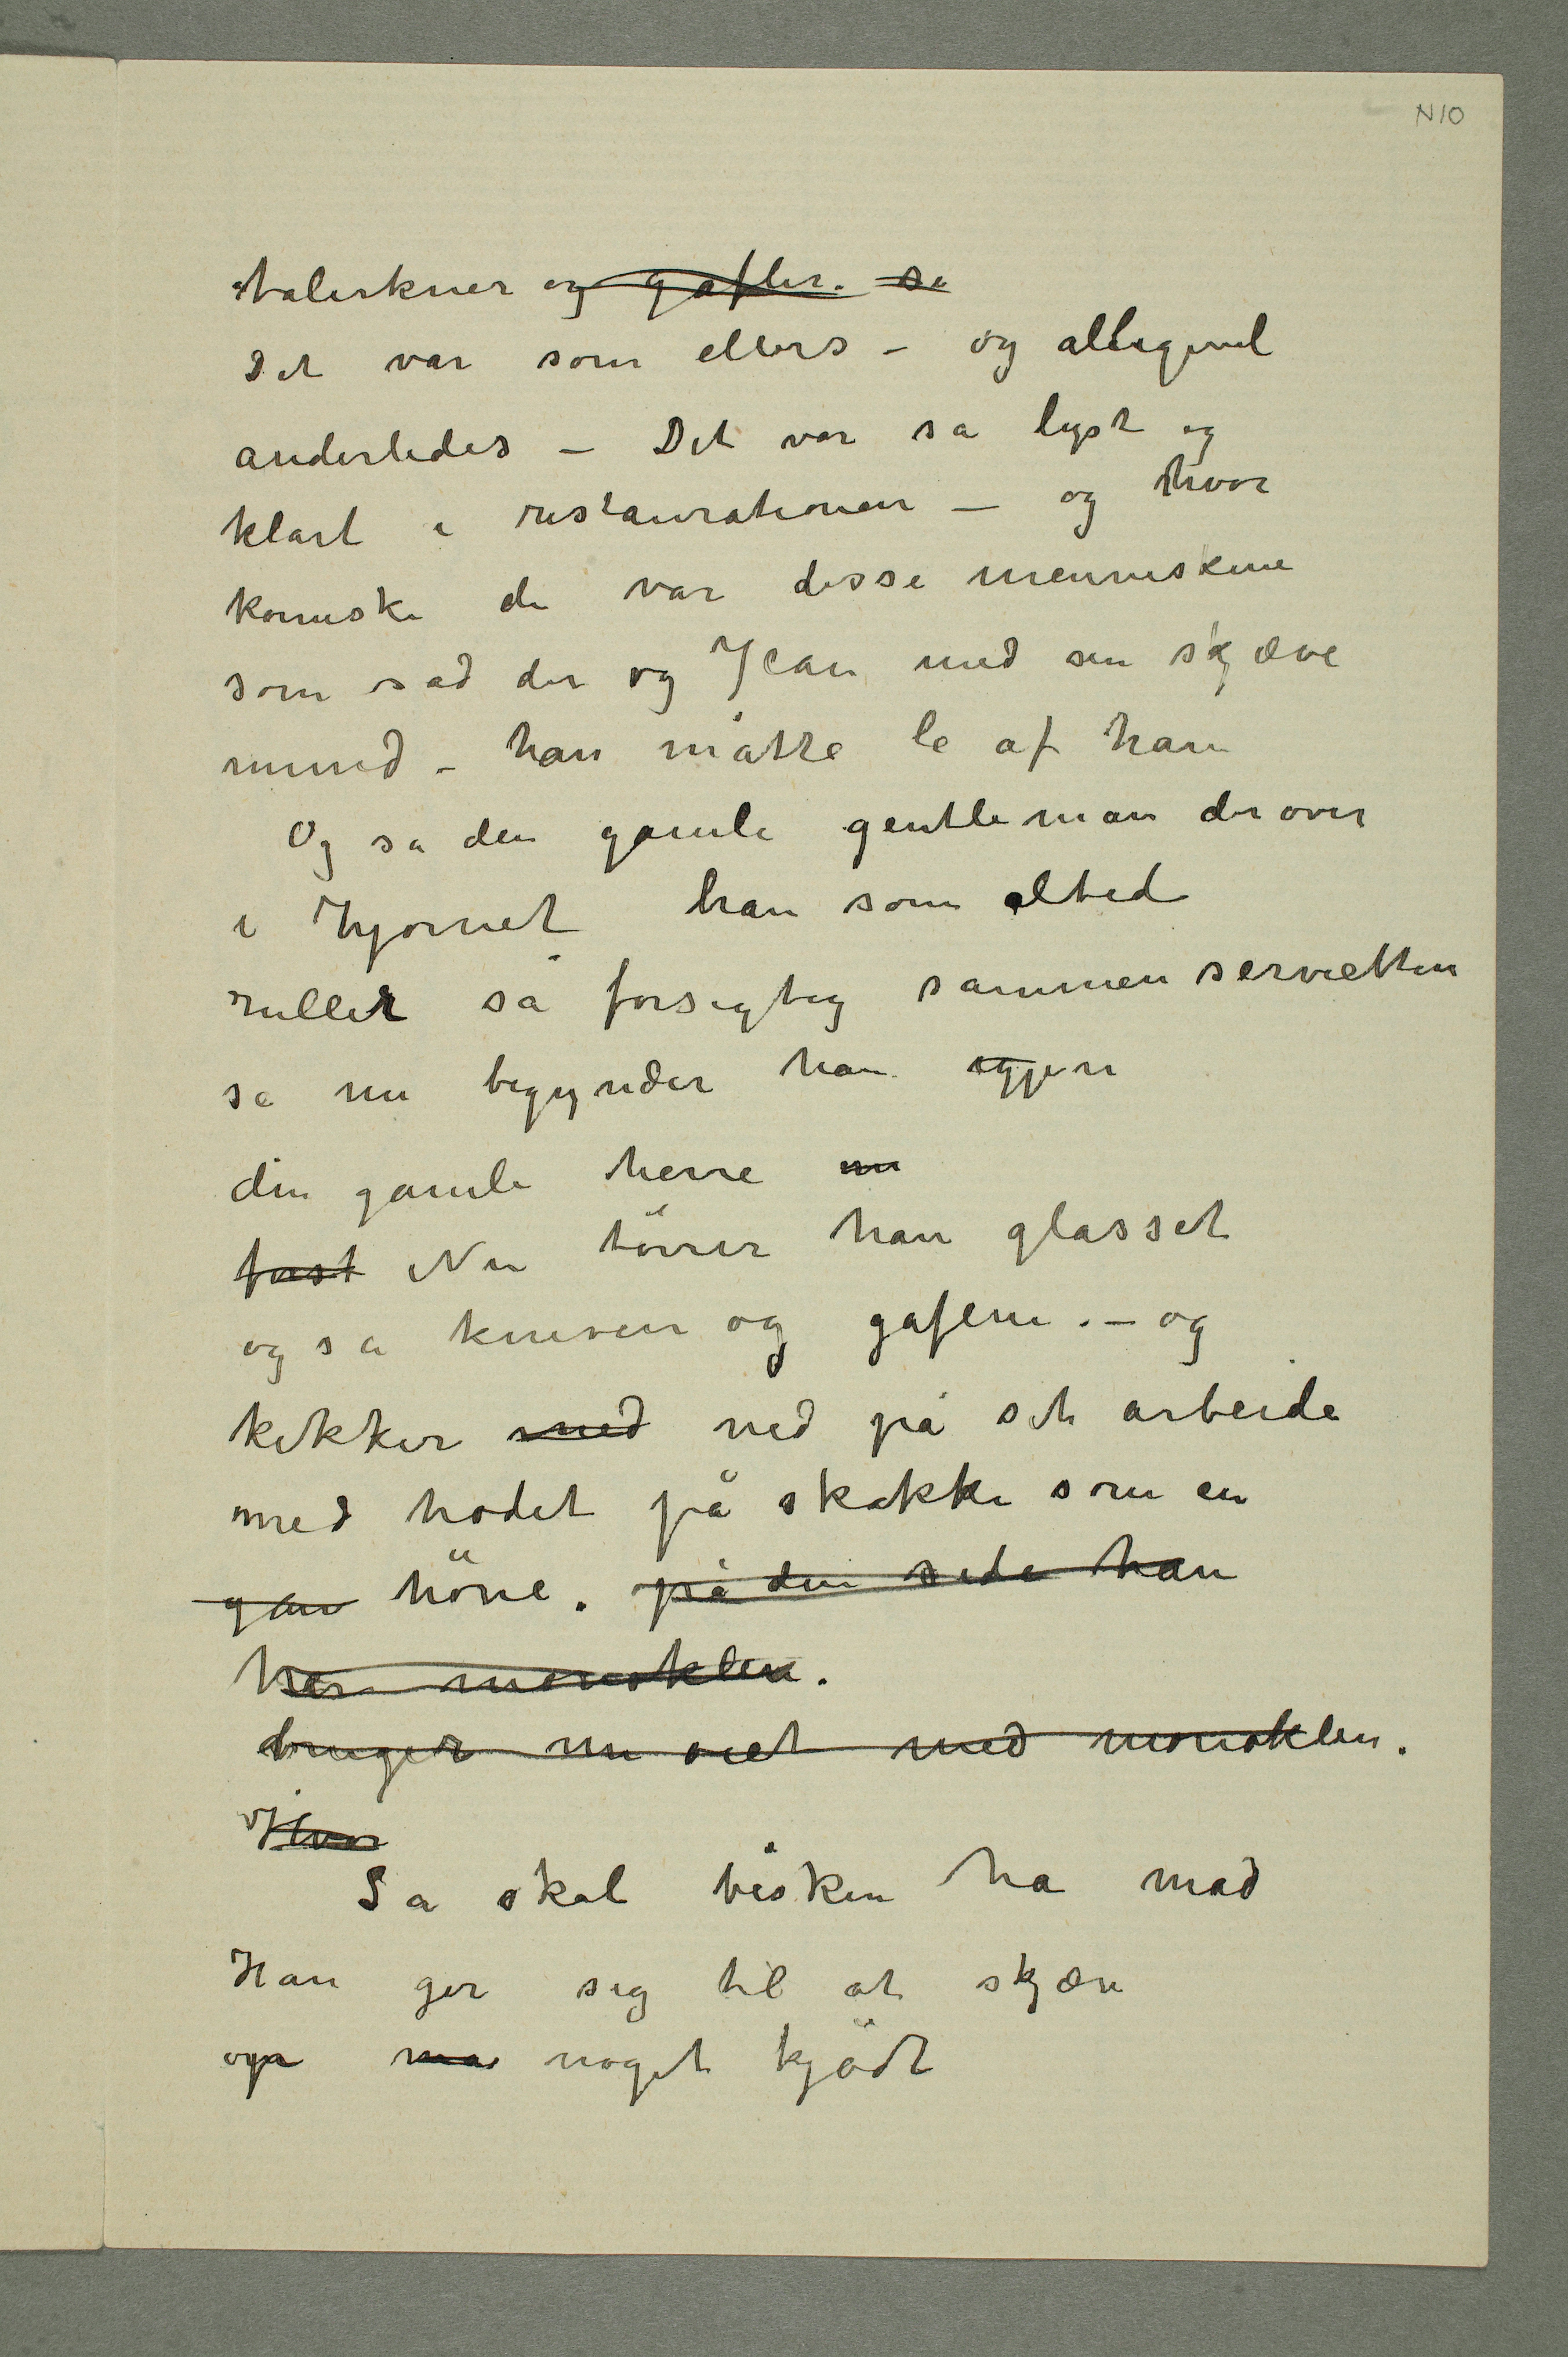 N10
talerkner og gafler. så
Det var som ellers – og alligevel
anderledes – Det var så lyst og
klart i restaurationen – og hvor
komiske de var disse menneskene
som sad der og Jean med sin skjæve
mund – han måtte le af ham
Og så den gamle gentleman der over
i Hjørnet han som altid
ruller så forsigtig sammen servietten
se nu begynder han igjen
den gamle herre nu
først Nu törrer han glasset
og så kniven og gaflene. – og
kikker med ned på sit arbeide
med hodet på skakke som en
gam höne. på den side han
har monoklen.
bruger nu øiet med monoklen.
Hvor
Så skal bisken ha mad
Han gir sig til at skjære
op ma noget kjödt